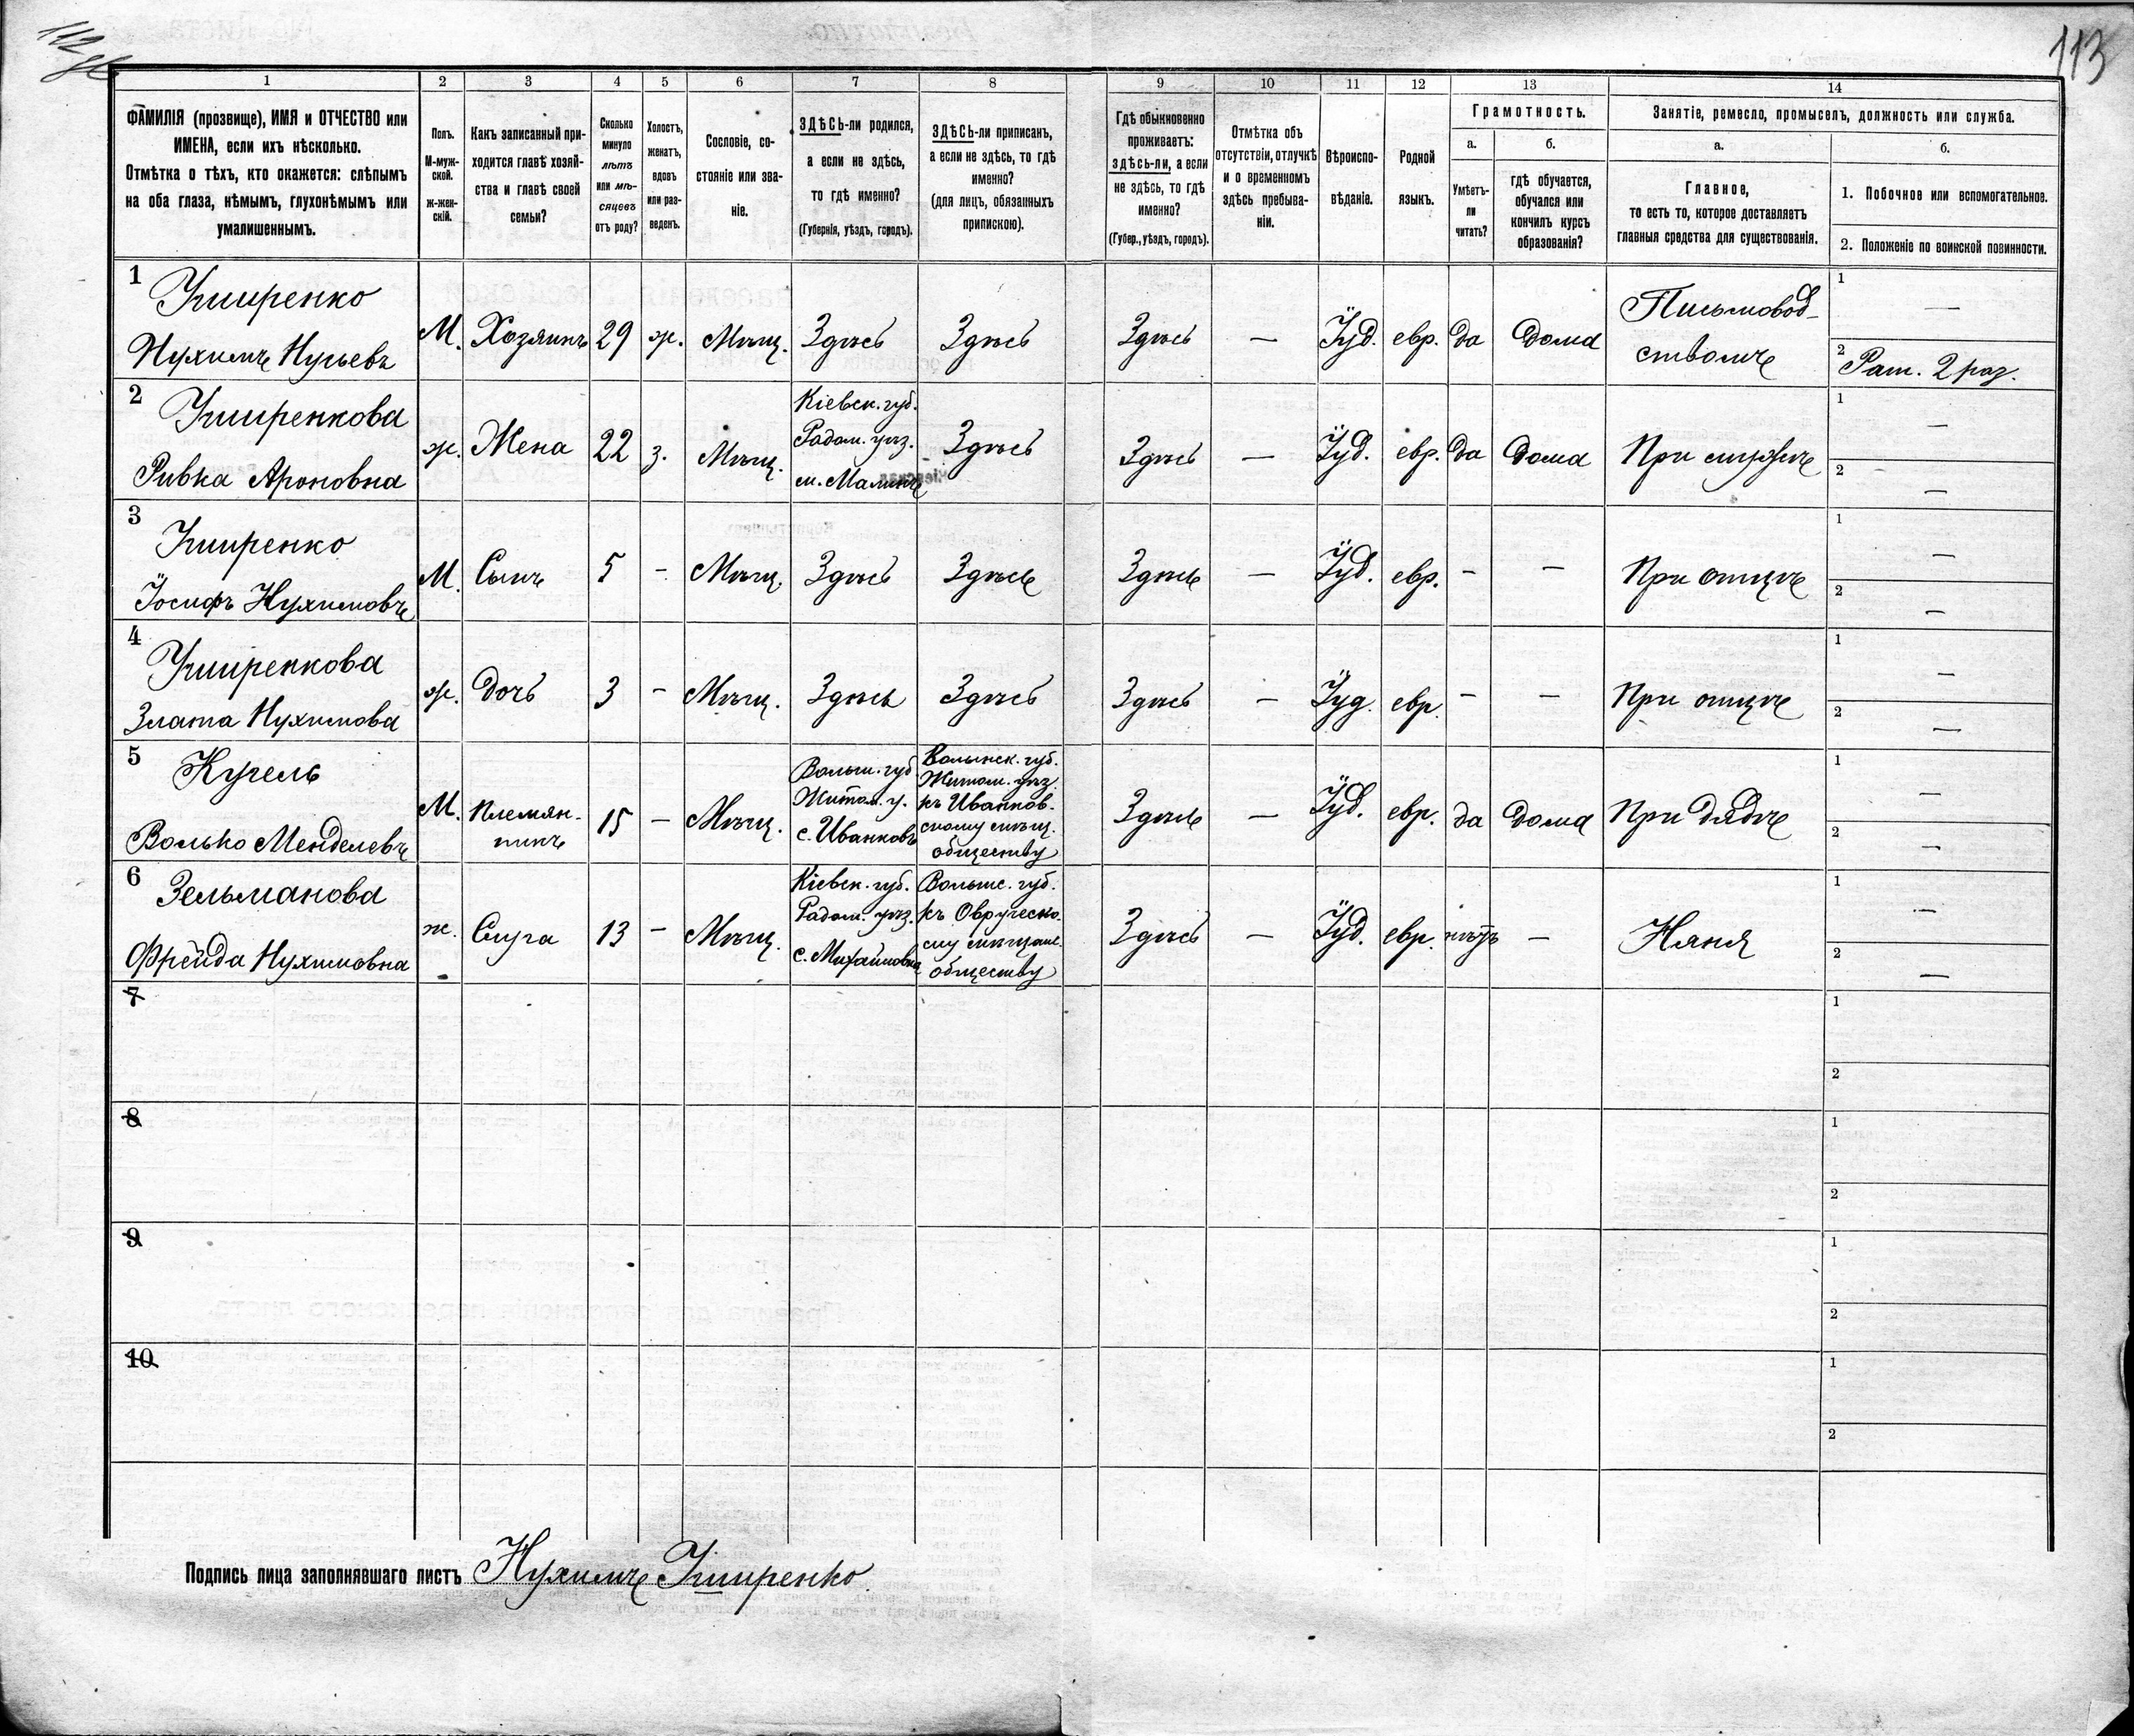 113
1 2 3 4 5 6 7 8 9 10 11 12 13 14
ФАМИЛІЯ (прозвище), ИМЯ и ОТЧЕСТВО или
ИМЕНА, если ихъ нѣсколько.
Отмѣтка о тѣхъ, кто окажется: слѣпымъ
на оба глаза, нѣмымъ, глухонѣмымъ или
умалишеннымъ.
Полъ.
М-муж-
ской.
ж-жен-
скій.
Какъ записанный при-
ходится главѣ хозяй-
ства и главѣ своей
семьи?
Сколько
минуло
лѣтъ
или мѣ-
сяцевъ
отъ роду?
Холостъ,
женатъ,
вдовъ
или раз-
веденъ.
Сословіе, со-
стояніе или зва-
ніе.
ЗДѢСЬ-ли родился,
а если не здѣсь,
то гдѣ именно?
(Губернія, уѣздъ, городъ).
ЗДѢСЬ-ли приписанъ,
а если не здѣсь, то гдѣ
именно?
(для лицъ, обязанныхъ
припискою).
Гдѣ обыкновенно
проживаетъ:
здѣсь-ли, а если
не здѣсь, то гдѣ
именно?
(Губер., уѣздъ, городъ).
Отмѣтка объ
отсутствіи, отлучкѣ
и о временномъ
здѣсь пребыва-
ніи.
Вѣроиспо-
вѣданіе.
Родной
языкъ.
Грамотность.
а.
Умѣетъ-
ли
читать?
б.
гдѣ обучается,
обучался или
кончилъ курсъ
образованія?
Занятіе, ремесло, промыселъ, должность или служба.
а.
Главное,
то есть то, которое доставляетъ
главныя средства для существованія.
б.
1. Побочное или вспомогательное.
2. Положеніе по воинской повинности.
1
Уширенко
Нухимъ
М.
Хозяинъ
29
ж.
Мѣщ.
Здѣсь
Здѣсь
Здѣсь
—
Іуд.
евр.
да
дома
Письмовод-
ствомъ
1 —
2 Рат. 2 раз.
2
Уширенкова
Ривка Ароновна
ж.
Жена
22
з.
Мѣщ.
Кіевск. губ.
Радом. уѣз.
м. Малинъ
Здѣсь
Здѣсь
—
Іуд.
евр.
да
дома
При мужѣ
1 —
2 —
3
Уширенко
Іосифъ Нухимовъ
М.
Сынъ
5
-
Мѣщ.
Здѣсь
Здѣсь
Здѣсь
—
Іуд.
евр.
-
-
При отцѣ
1 —
2 —
4
Уширенкова
Злата Нухимова
ж.
дочь
3
-
Мѣщ.
Здѣсь
Здѣсь
Здѣсь
—
Іуд.
евр.
-
-
При отцѣ
1 —
2 —
5
Кугель
Волько Менделевъ
М.
племян-
никъ
15
—
Мѣщ.
Волын. губ
Житом. у.
с. Иванковъ
Волынск. губ.
Житом. уѣз.
къ Иванков-
скому мѣщ.
обществу
Здѣсь
—
Іуд.
евр.
да
дома
При дядѣ
1 —
2 —
6
Зельманова
Фрейда Нухимовна
ж.
Слуга
13
-
Мѣщ.
Кіевск. губ.
Радом. уѣз.
с. Михайловка
Волынс. губ.
къ Овручско-
му мѣщанс.
обществу
Здѣсь
—
Іуд.
евр.
нѣтъ
—
Няня
1 —
2 —
7
1
2
8
1
2
9
1
2
10
1
2
Подпись лица заполнявшаго листъ Нухимъ Уширенко